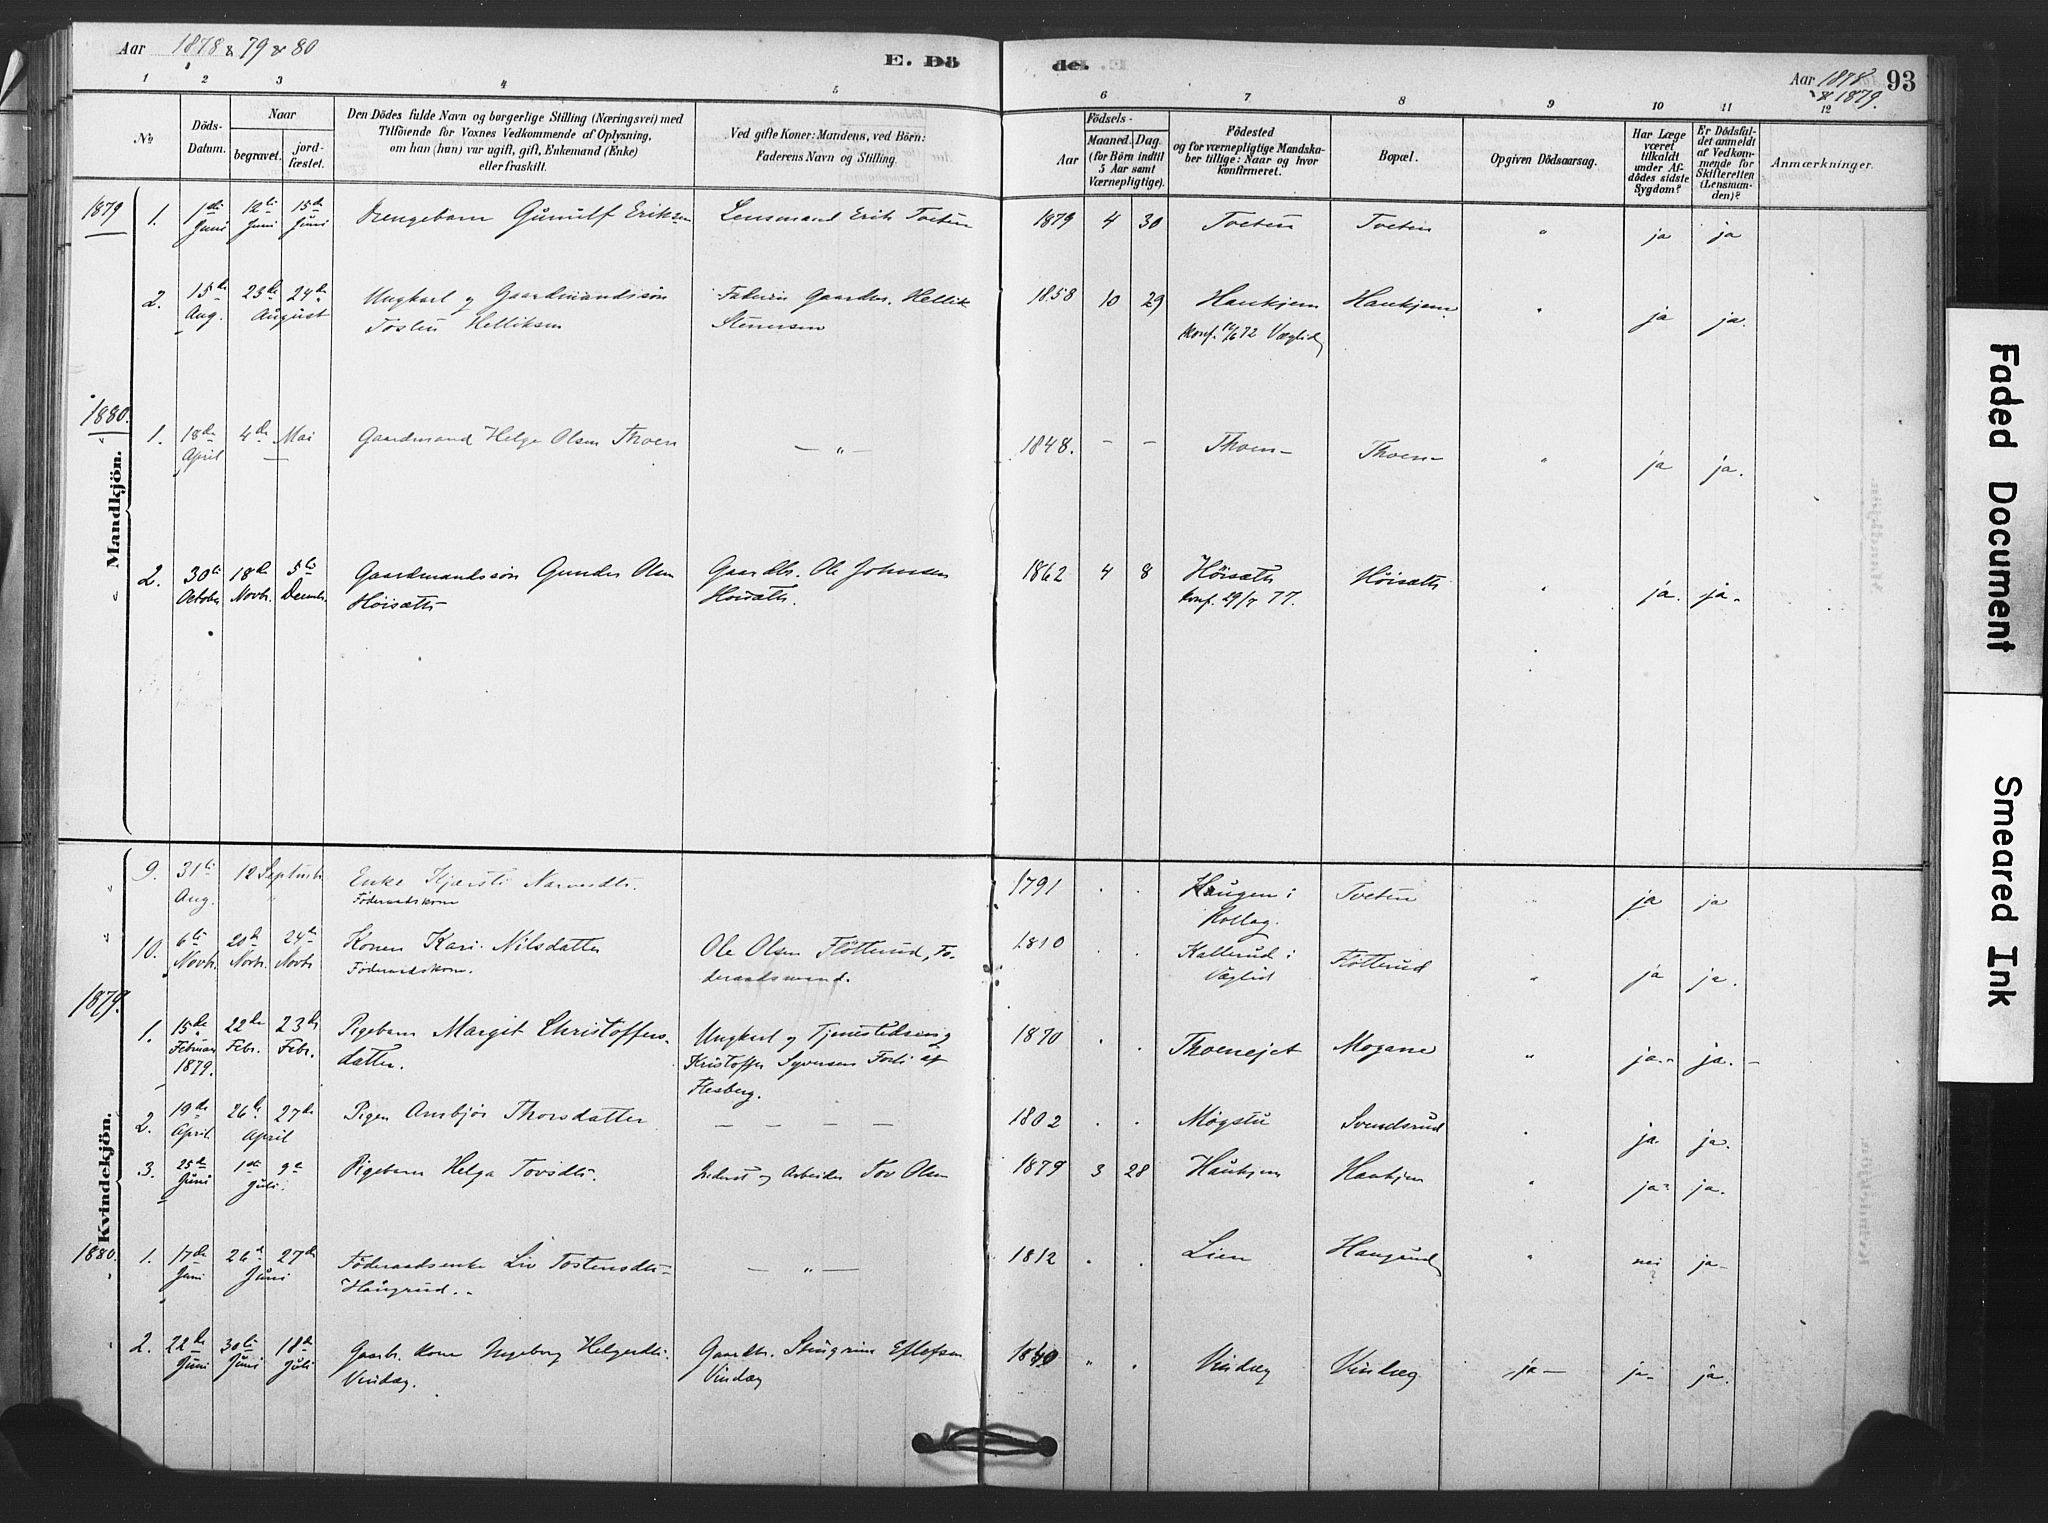 Aar 1878 & 79 & 80
E. Dö
de.
Aar 1878 & 1879.
93
1 2 3 4 5 6 7 8 9 10 11 12
No
Döds-Datum.
Naar
begravet.
jord-fæstet.
Den Dödes fulde Navn og borgerlige Stilling (Næringsvei) med
Tilföiende for Voxnes Vedkommende af Oplysning,
om han (hun) var ugift, gift, Enkemand (Enke)
eller fraskilt.
Ved gifte Koner: Mandens, ved Börn:
Faderens Navn og Stilling.
Födsels-
Aar
Maaned. Dag.
(for Börn indtil
5 Aar samt
Værnepligtige).
Födested
og for værnepligtige Mandska-
ber tillige: Naar og hvor
konfirmeret.
Bopæl.
Opgiven Dödsaarsag.
Har Læge
været
tilkaldt
under Af-
dödes sidste
Sygdom?
Er Dödsfal-
det anmeldt
af Vedkom-
mende for
Skifteretten
(Lensman-
den)?
Anmærkninger.
Mandkjön.
1879
1. 1ste Juni 12te Juni 15de Juni Drengebarn Gunulf Eriksen Lensmand Erik Tveten 1879 4 30 Tveten Tveten " ja ja
2. 15de Aug. 23de 24de August Ungkarl og Gaardmandssøn Tosten Helliksen Faderen Gaardbr. Hellik Stenersen 1858 10 29 Haukjem Konf. 72 Væglid Haukjem " ja ja.
1880.
1. 18de April 4de Mai Gaardmand Helge Olsen Thoen — " — 1848. — — Thoen Thoen " ja ja.
2. 30te October 18de Novbr. 5te Decmbr. Gaardmandssøn Gunder Olsen Höisæth Gaardbr. Ole Johnsen Höisæth. 1862 4 8 Höisæth Konf. 77. Höisæth " ja. ja.
Kvindekjön.
9. 31te Aug. 12 Septembr Enke Kjersti Narvesdtr. Föderaadskone 1791 . . Haugen i Rollag. Tveten " ja ja
10. 6te Novbr. 20de Novbr. 24de Novbr Konen Kari Nilsdatter Föderaadskone. Ole Olsen Flötterud, Föderaadsmand. 1810 . . Kallerud i Væglid Flötterud " ja ja.
1879.
1. 15de Februar 1879. 22de Febr. 23de Febr. Pigebarn Margit Christoffersdatter. Ungkarl og Tjenestedreng Kristoffer Syversen af Flesberg. 1870 . . Thoeneiet Mogane " ja. ja.
2. 19de April. 26de 27de April Pigen Ambjör Thorsdatter — — — — 1802 . . Mogstu Svendsrud " ja ja.
3. 25de Juni 1ste 9de Juli. Pigebarn Helga Tovsdtr. Inderst og Arbeider Tov Olsen 1879 3 28 Haukjem Haukjem " ja ja.
1880.
1. 17de Juni 26de 27de Juni Föderaadsenke Liv Tostensdtr. Haugrud. — " — 1812 . . Lien Haugrud " nei ja
2. 22de Juni 30te Juni 18de Juli Gaardbr. kone Ingeborg Helgesdtr. Vindeg. Gaardbr. Stengrim Eflofsen Vindeg 1840 " . Vindeg Vindeg ja — ja ja.
Faded Document
Smeared Ink